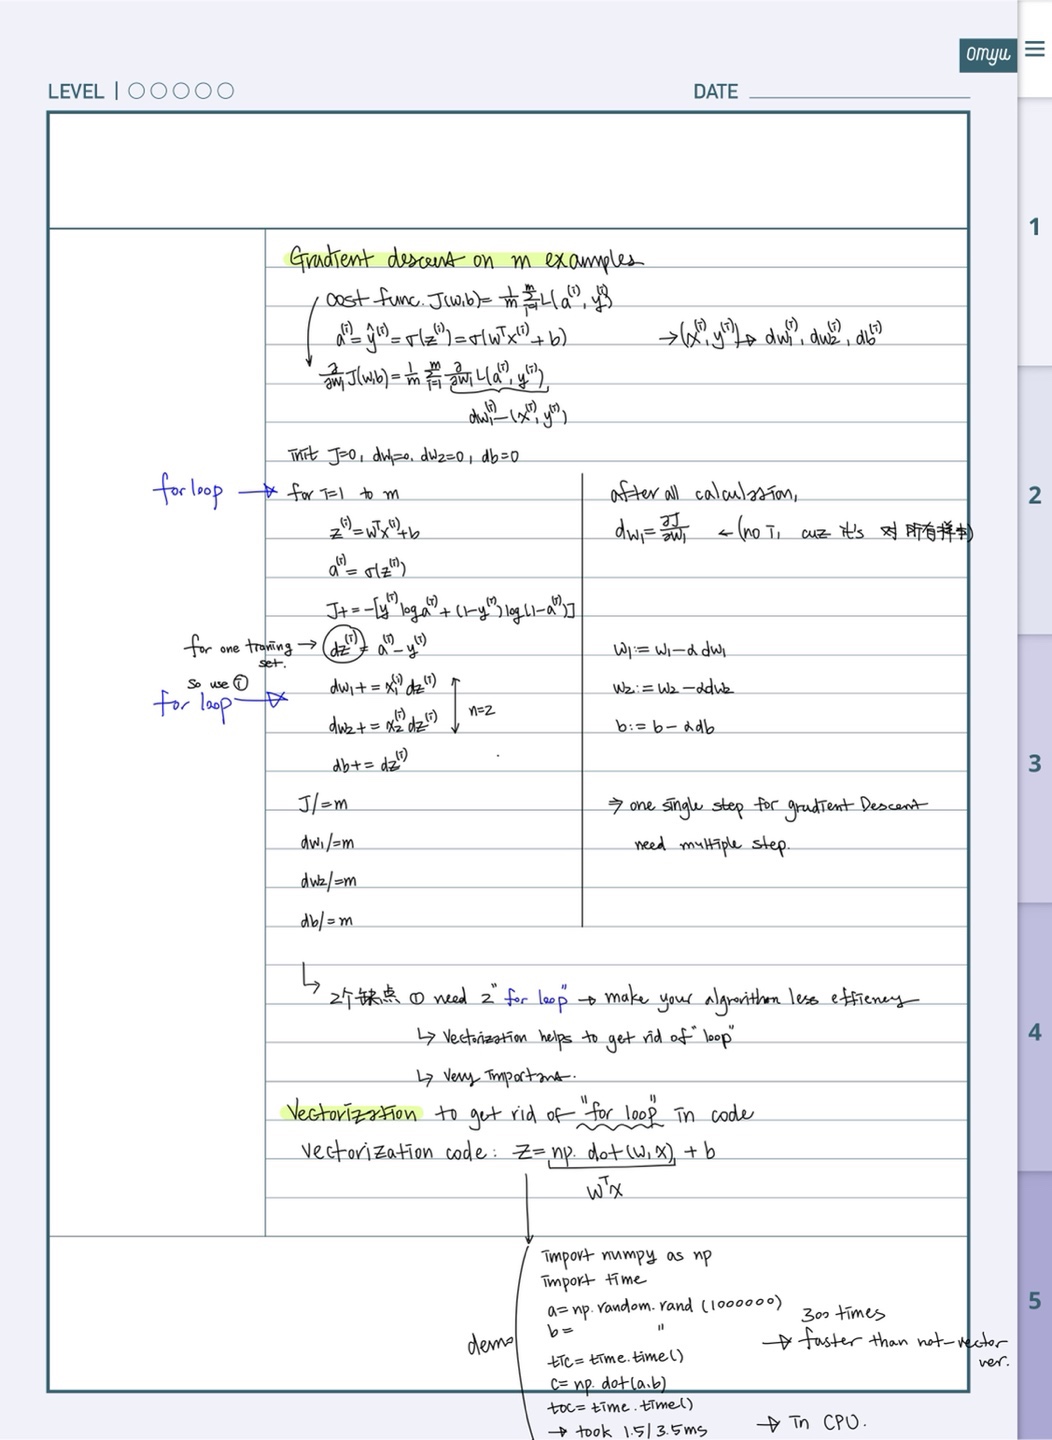 omyu
LEVEL | ○○○○○
DATE
1
2
3
4
5
Gradient descent on m examples
cost func. J(w,b) = 1/m Σᵢ₌₁ᵐ L(a⁽ⁱ⁾, y⁽ⁱ⁾)
a⁽ⁱ⁾ = ŷ⁽ⁱ⁾ = σ(z⁽ⁱ⁾) = σ(wᵀx⁽ⁱ⁾ + b) → (x⁽ⁱ⁾, y⁽ⁱ⁾) → dw₁⁽ⁱ⁾, dw₂⁽ⁱ⁾, db⁽ⁱ⁾
∂/∂w₁ J(w,b) = 1/m Σᵢ₌₁ᵐ ∂/∂w₁ L(a⁽ⁱ⁾, y⁽ⁱ⁾)
dw₁⁽ⁱ⁾ – (x⁽ⁱ⁾, y⁽ⁱ⁾)
init J=0, dw₁=0, dw₂=0, db=0
for loop →
for i=1 to m
z⁽ⁱ⁾ = wᵀx⁽ⁱ⁾ + b
a⁽ⁱ⁾ = σ(z⁽ⁱ⁾)
J += -[y⁽ⁱ⁾ log a⁽ⁱ⁾ + (1-y⁽ⁱ⁾) log(1-a⁽ⁱ⁾)]
for one training →
set.
so use ⓘ
dz⁽ⁱ⁾ = a⁽ⁱ⁾ - y⁽ⁱ⁾
for loop →
dw₁ += x₁⁽ⁱ⁾ dz⁽ⁱ⁾
n=2
dw₂ += x₂⁽ⁱ⁾ dz⁽ⁱ⁾
db += dz⁽ⁱ⁾
J /= m
dw₁ /= m
dw₂ /= m
db /= m
after all calculation,
dw₁ = ∂J/∂w₁ ← (no i, cuz it's 对 所有样本)
w₁ := w₁ - α dw₁
w₂ := w₂ - α dw₂
b := b - α db
⇒ one single step for gradient Descent
need multiple step.
↳ 2个缺点 ① need 2 "for loop" → make your algorithm less effieney
↳ Vectorization helps to get rid of "loop"
↳ Very important.
Vectorization to get rid of "for loop" in code
vectorization code: z = np. dot(w,x) + b
wᵀx
demo
import numpy as np
import time
a = np. random. rand (1000000)
b = "
tic = time.time()
c = np. dot(a,b)
toc = time.time()
→ took 1.5/3.5ms → in CPU.
300 times
→ faster than not-vector
ver.